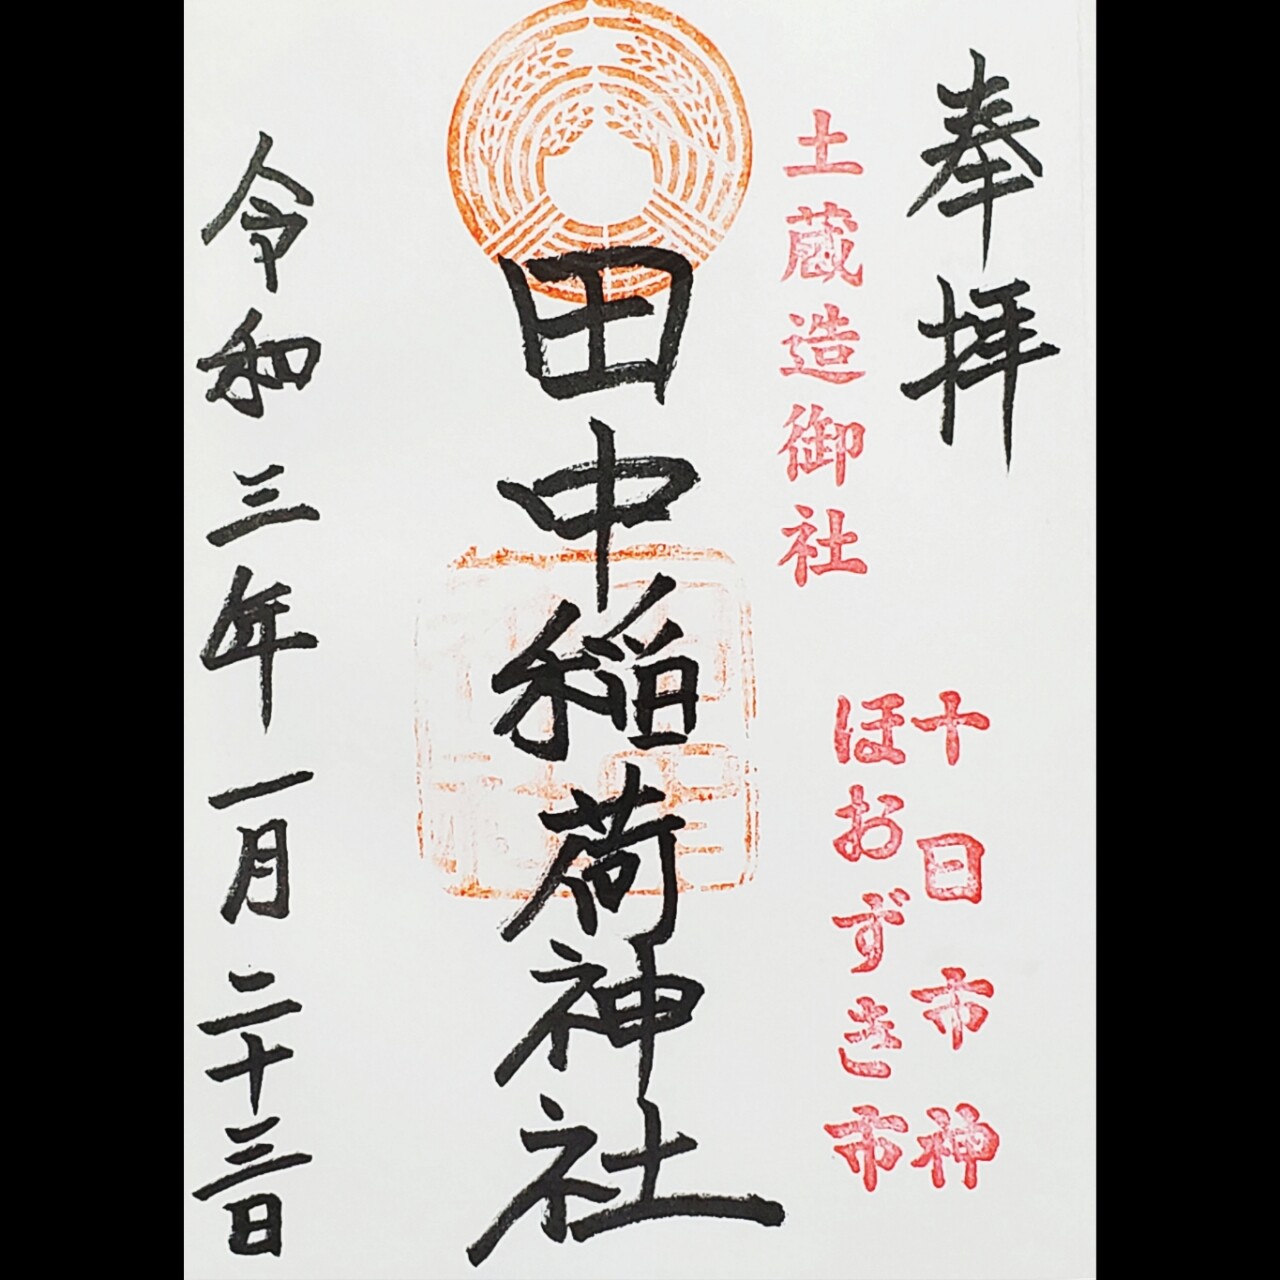 奉拝
土蔵造御社
十日市神
ほおずき市
田中稲荷神社
令和三年一月二十三日